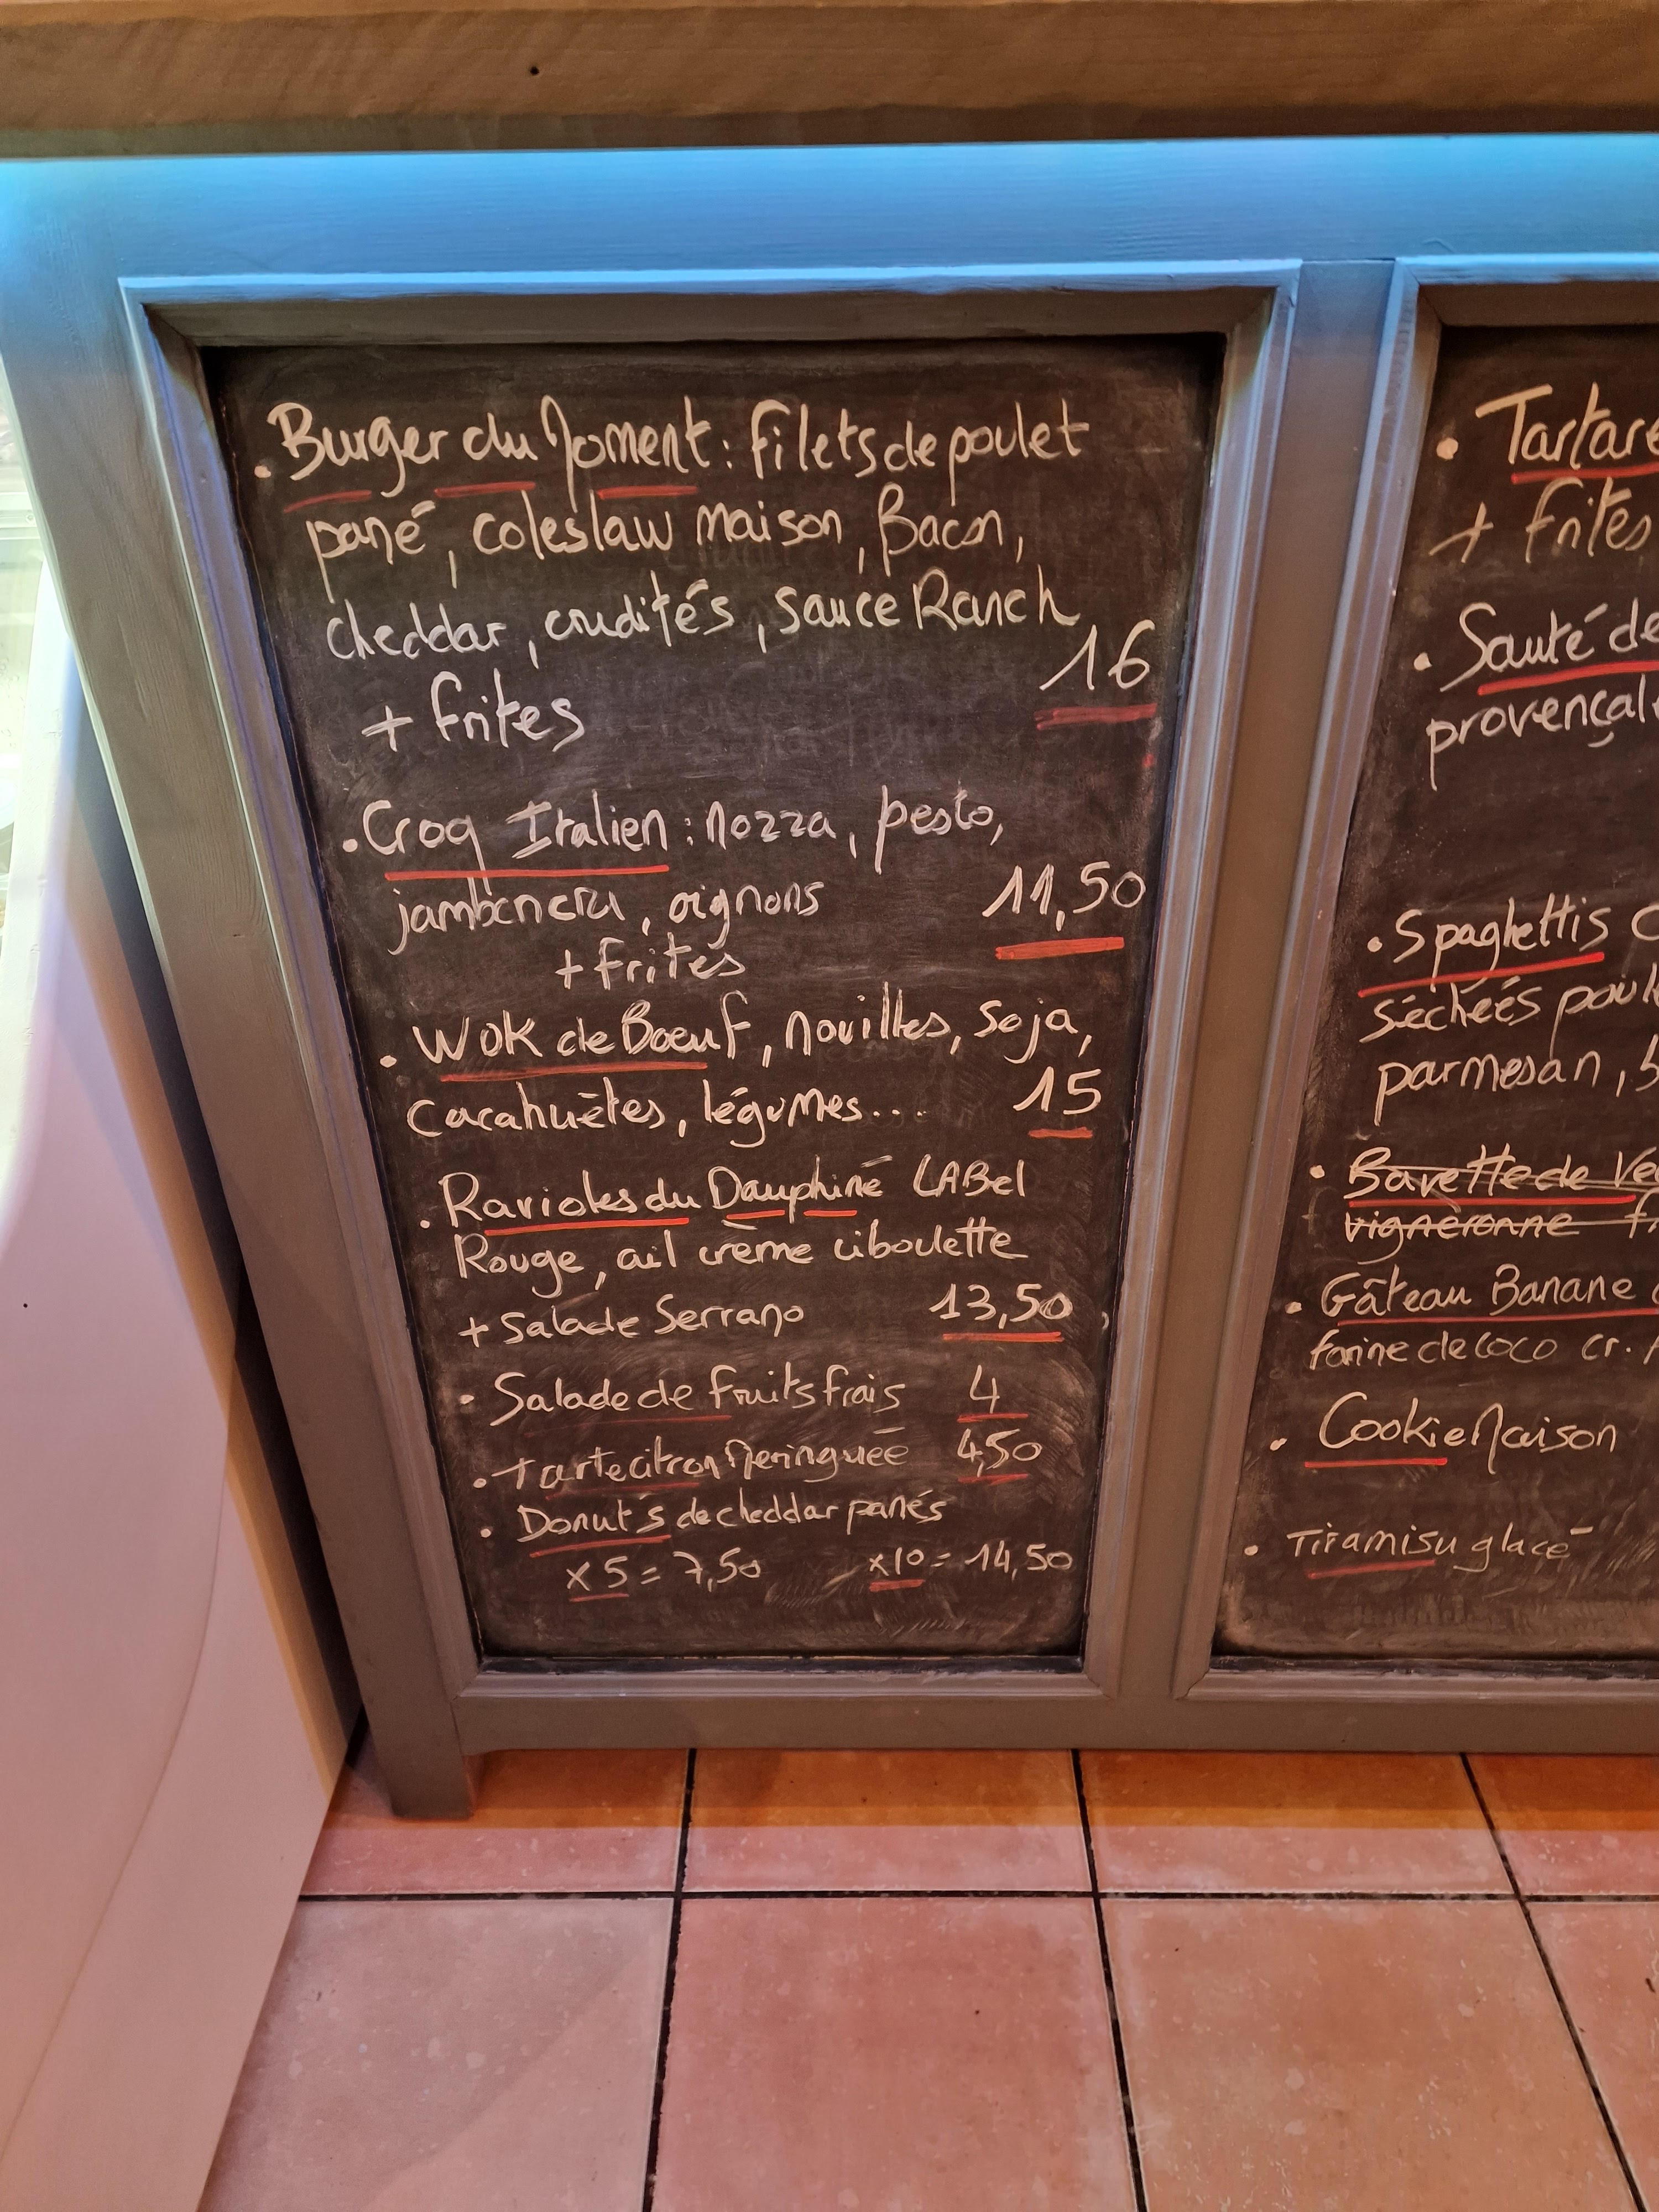 . Burger du Moment : filets de poulet
pané, coleslaw maison, Bacon,
cheddar, crudités, sauce Ranch
16
+ frites
. Croq Italien : mozza, pesto,
jambon cru, oignons 11,50
+ frites
. Wok de Boeuf, nouilles, soja,
cacahuètes, légumes... 15
. Ravioles du Dauphiné LABel
Rouge, ail crème ciboulette
+ Salade Serrano 13,50
. Salade de fruits frais 4
. Tarte citron Meringuée 4,50
. Donut's de cheddar panés
x5 = 7,50 x10 = 14,50
. Tartare
+ frites
. Sauté de
provençale
. Spaghettis
séchées poul
parmesan,
. Bavette de Ve
vigneronne
. Gâteau Banane
farine de coco cr.
. Cookie Maison
. Tiramisu glacé